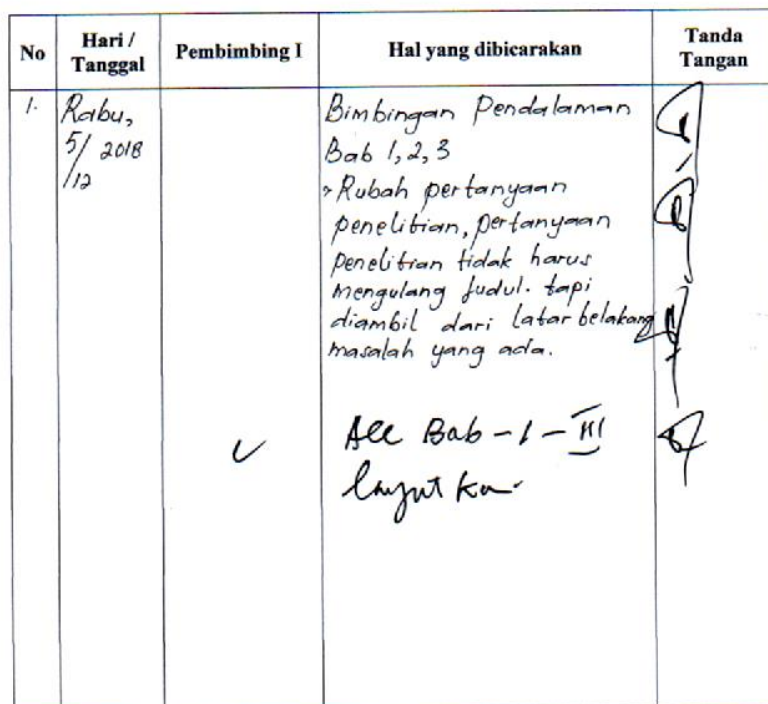 No Hari / Tanggal Pembimbing I Hal yang dibicarakan Tanda Tangan
1. Rabu, Bimbingan Pendalaman
5/12 2018 Bab 1, 2, 3
Rubah pertanyaan
penelitian, pertanyaan
penelitian tidak harus
mengulang Judul. tapi
diambil dari latar belakang
masalah yang ada.
Acc Bab - I - III
lanjutkan